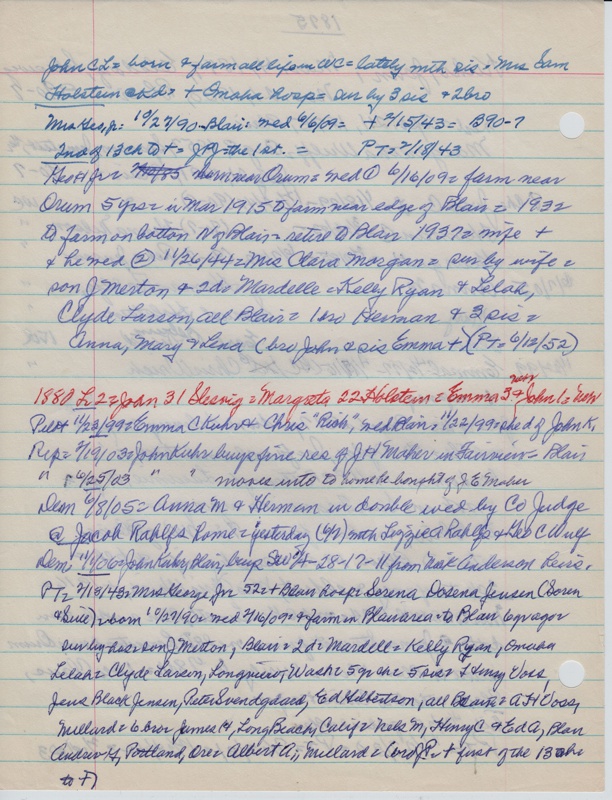 John C L = born & farm all life in WC = lately with sis = Mrs Sam
Holstein & d = + Omaha hosp = sur by 3 sis & 2 bro
Mrs Geo, Jr = 10/27/90 - Blair = wed 6/6/09 = + 2/15/43 = B90-7
2nd of 13 ch to + = of the 1st. = PT = 2/18/43
Geo H Jr = born near Orum = wed ① 6/16/09 = farm near
Orum 5 yrs = in Mar 1915 to farm near edge of Blair = 1932
to farm on bottom N of Blair = retire to Blair 1937 = wife +
& he wed ② 11/26/44 = Mrs Clara Morgan = sur by wife =
son J Merton & 2 d = Mardelle = Kelly Ryan & Lelah,
Clyde Larson, all Blair = 1 bro Herman & 3 sis =
Anna, Mary & Lena (bro John & sis Emma +) (PT = 6/12/52)
1880 L 2 = Joan 31 Slesvig = Margreta 22 Holstein = Emma 3 & John 1 = New
Pilot 11/23/99 = Emma C Kuhr & Chris "Rish", wed Blair 11/22/99 = d of John K,
Rep = 2/19/03 = John Kuhr buys fine res of J H Maher in Fairview = Blair
" = 6/25/03 " " moves into to home he bought of J E Maher
Dem 6/8/05 = Anna M & Herman in double wed by Co Judge
@ Jacob Rahlfs home = yesterday (6/7) with Lizzie A Rahlfs & Geo C Wulf
Dem 1/1/06 = John Kuhr, Blair, buys SW 1/4 - 28-17-11 from Anderson heirs.
PT = 2/18/43 = Mrs George Jr 52 = + Blair hosp = Serena Dosena Jensen (Soren
& Sine) = born 10/27/90 = wed 2/16/09 = & farm in Blair area = to Blair 6 yr ago =
sur by hus = son J Merton, Blair = 2 d = Mardell = Kelly Ryan, Omaha
Lelah = Clyde Larson, Longview, Wash = 5 gr ch = 5 sis = Henry Voss,
Jens Black Jensen, Peter Svendgaard, Ed Hilbertson, all Blair = A H Voss,
Millard = 6 bro = James H, Long Beach, Calif = Nels M, Henry C & Ed A, Blair
Andrew H, Portland, Ore = Albert A, Millard = + first of the 13 ch
to +)